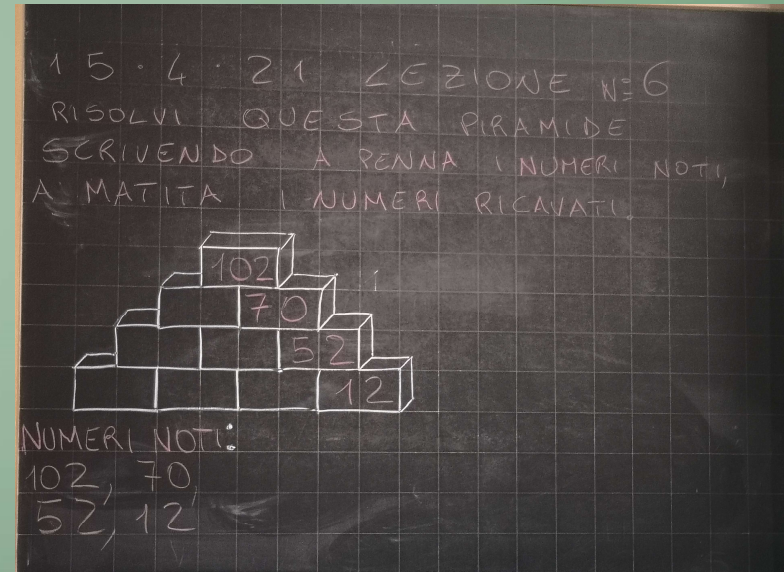 15.4.21 LEZIONE N=6
RISOLVI QUESTA PIRAMIDE
SCRIVENDO A PENNA I NUMERI NOTI,
A MATITA I NUMERI RICAVATI.
102
70
52
12
NUMERI NOTI:
102, 70,
52, 12